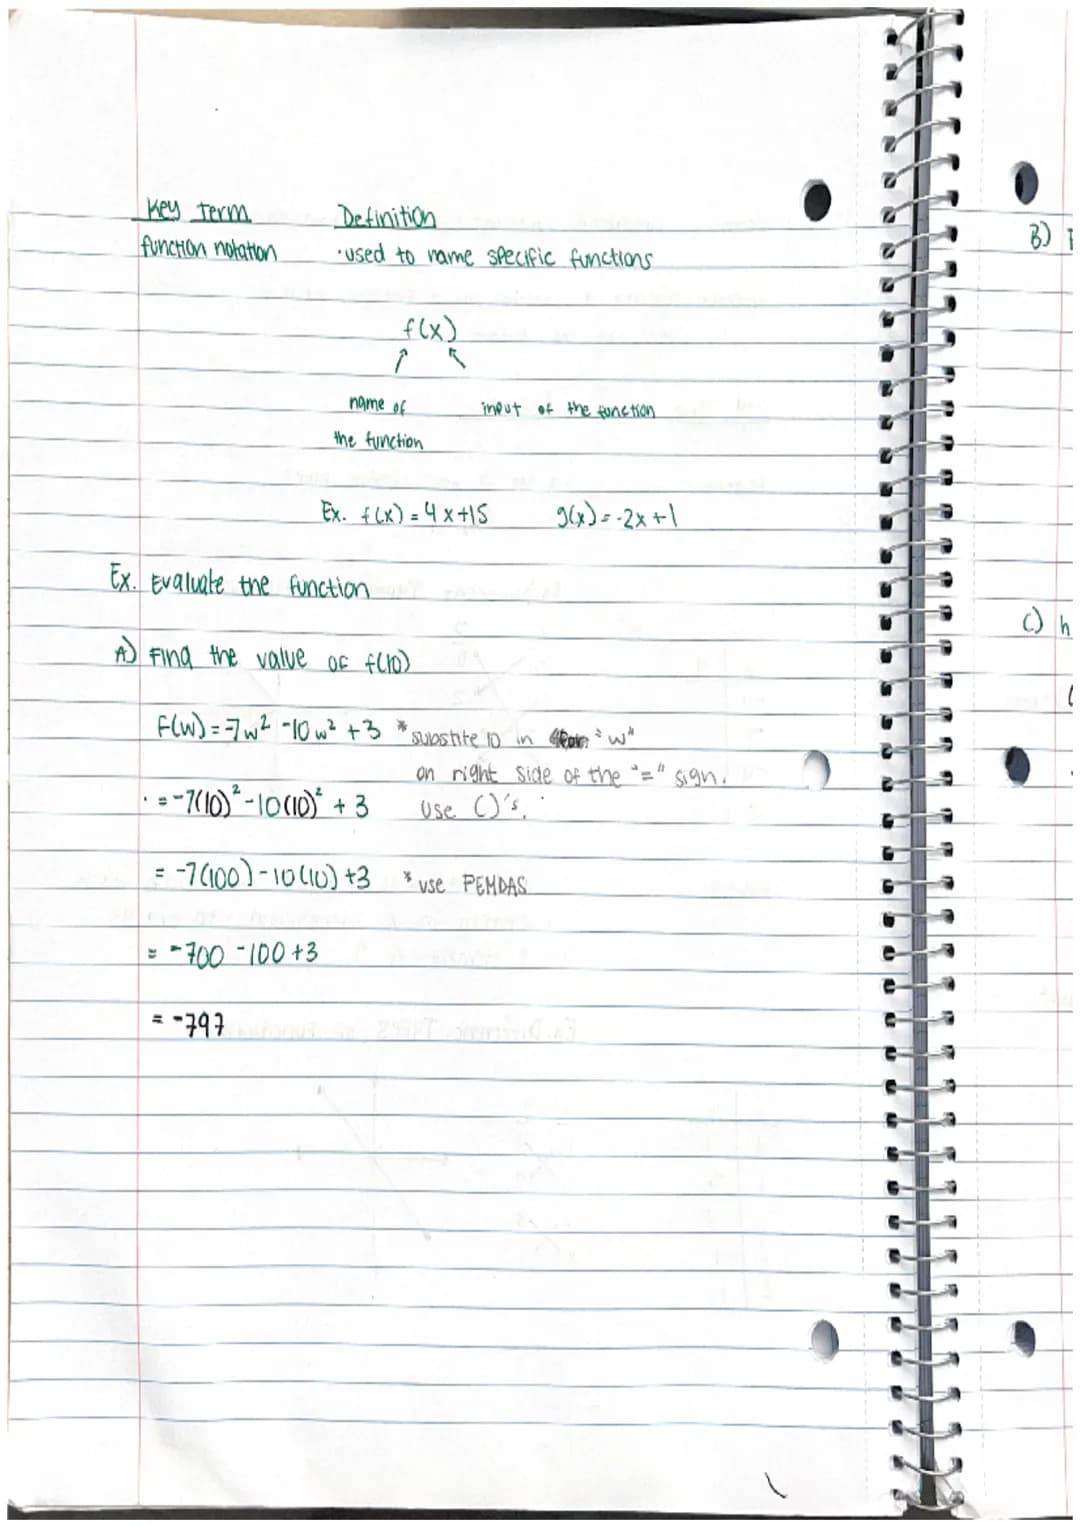 Key Term Definition
function notation · used to name specific functions
f(x)
name of input of the function
the function
Ex. f(x) = 4x+15 g(x) = -2x+1
Ex. Evaluate the function
A) Find the value of f(10)
f(w) = -7w² -10w² +3 * substite 10 in "w"
on right side of the "=" sign.
· = -7(10)² -10(10)² + 3 Use ()'s.
= -7(100) -10(10) +3 * use PEMDAS
= -700 -100 +3
= -797
B)
C) h